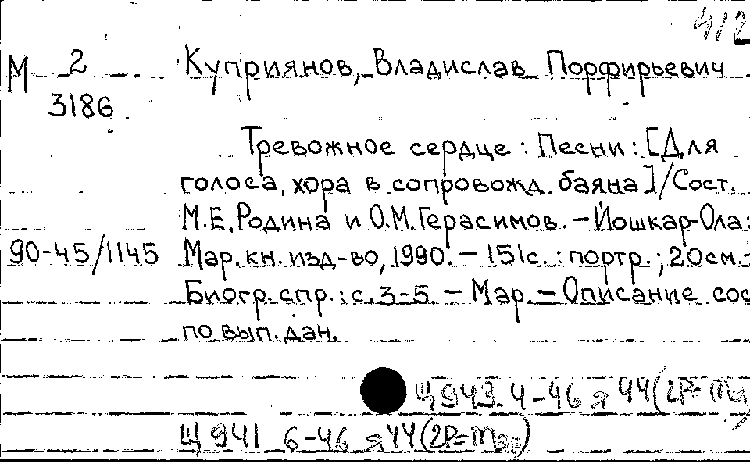 412
М 2 Куприянов, Владислав Порфирьевич
3186
Тревожное сердце : Песни : [Для
голоса, хора в сопровожд. баяна] / Сост.
М.Е. Родина и О.М. Герасимов. – Йошкар-Ола:
90-45/1145 Мар. кн. изд-во, 1990. – 151с. : портр. ; 20см. –
Биогр. спр.: с. 3-5. – Мар. – Описание сос
по вып. дан.
Щ 943. 4-46 я 44(2Р=Ма
Щ 941 6-46 я 44(2Р=Мар)